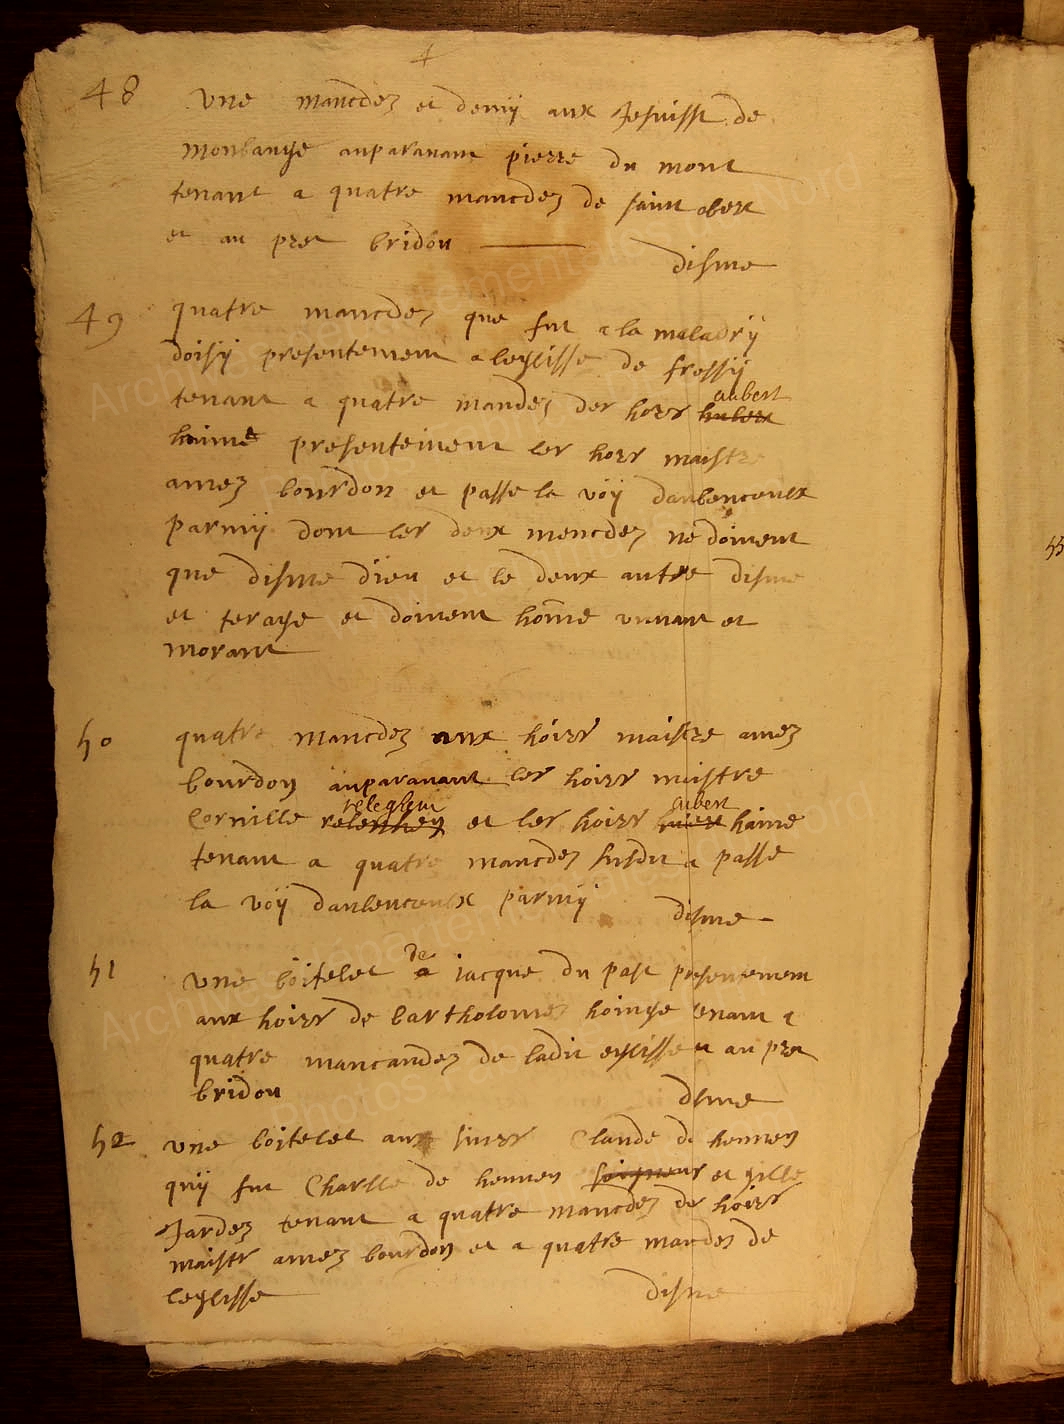 4
48 Une mancdez et demÿ aux Jesuisst de
monbange auparavant pierre du mont
tenant a quatre mancdez de saint obert
et au pret bridou disme
49 quatre mancdez que fut a la maladrÿ
doisÿ presentement a leglisse de fressÿ
tenant a quatre mandez der horr hubert aubert
haime presentement ler horr maistre
amez bourdon et passe la voÿ daubenceulx
parmÿ dont ler deux mencdez ne doivent
que disme dieu et le deux autre disme
et terage et doivent home vivant et
morant
50 quatre mancdez aux hoirr maistre amez
bourdon auparavant ler hoirr maistre
Cornille et ler hoirr aubert haime
tenant a quatre mancdez susdit a passe
la voÿ daubenceulx parmÿ disme
51 Une boitelet a de jacque du past presentement
aux hoirr de bartholomez hoinge tenant a
quatre mancaudez de ladit eglisse et au pret
bridou dime
52 Une boitelet aux Claude de hennen
quÿ fut Charlle de hennen soigneur et gille
Jardez tenant a quatre mancdez der hoirr
maistr amez bourdon et a quatre mandez de
leglisse disme
55